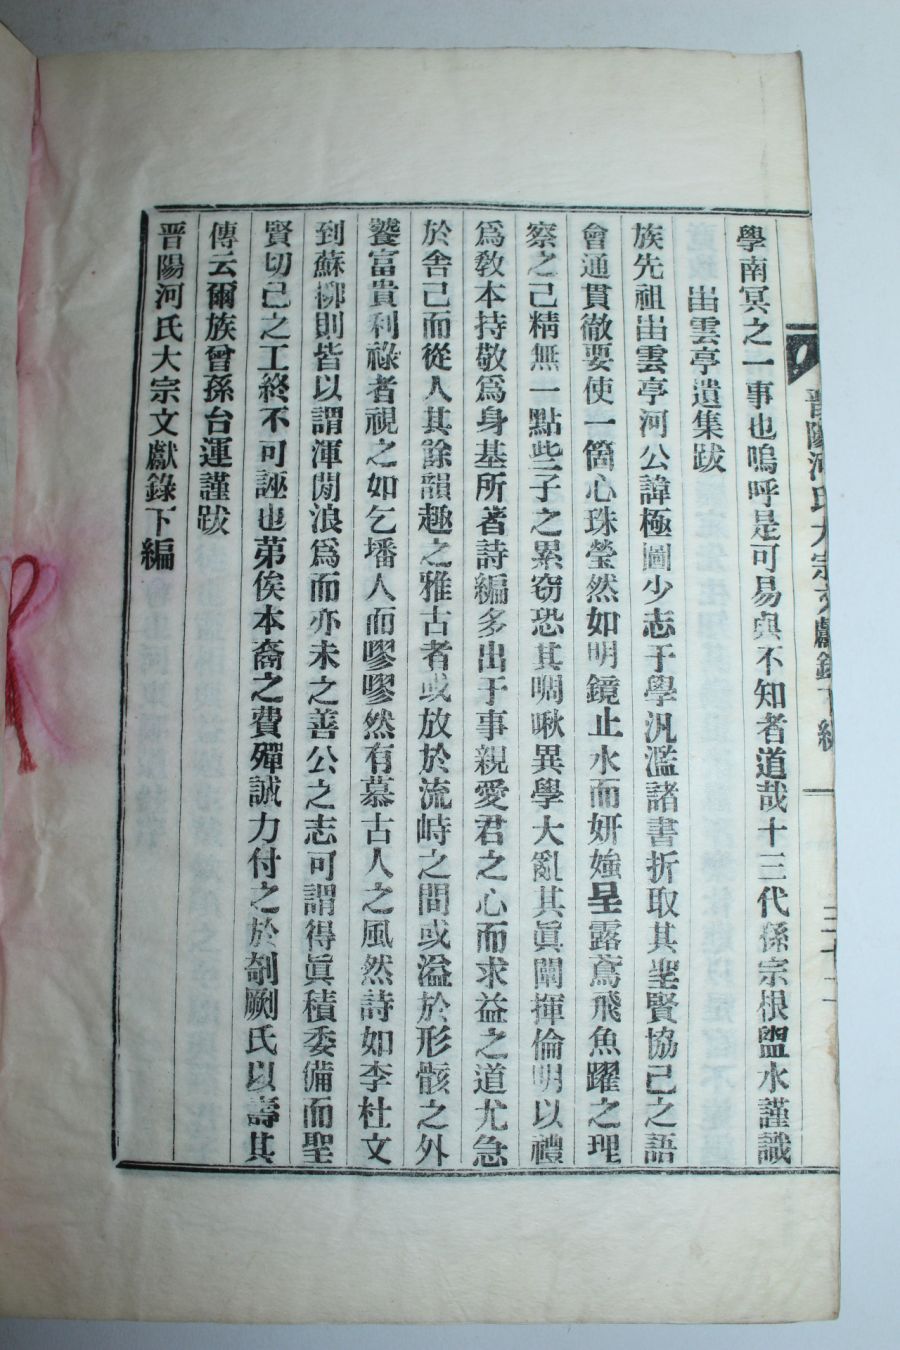 晋陽河氏大宗文獻錄下編
學南冥之一事也嗚呼是可易與不知者道哉十三代孫宗根盥水謹識
出雲亭遺集跋
族先祖出雲亭河公諱極圖少志于學汎濫諸書折取其聖賢協己之語
會通貫徹要使一箇心珠瑩然如明鏡止水而妍媸呈露鳶飛魚躍之理
察之己精無一點些子之累窃恐其啁啾異學大亂其眞闡揮倫明以禮
爲敎本持敬爲身基所著詩編多出于事親愛君之心而求益之道尤急
於舍己而從人其餘韻趣之雅古者或放於流峙之間或溢於形骸之外
饕富貴利祿者視之如乞墦人而嘐嘐然有慕古人之風然詩如李杜文
到蘇柳則皆以謂渾閒浪爲而亦未之善公之志可謂得眞積委備而聖
賢切己之工終不可誣也苐俟本裔之費殫誠力付之於剞劂氏以壽其
傳云爾族曾孫台運謹跋
晋陽河氏大宗文獻錄下編